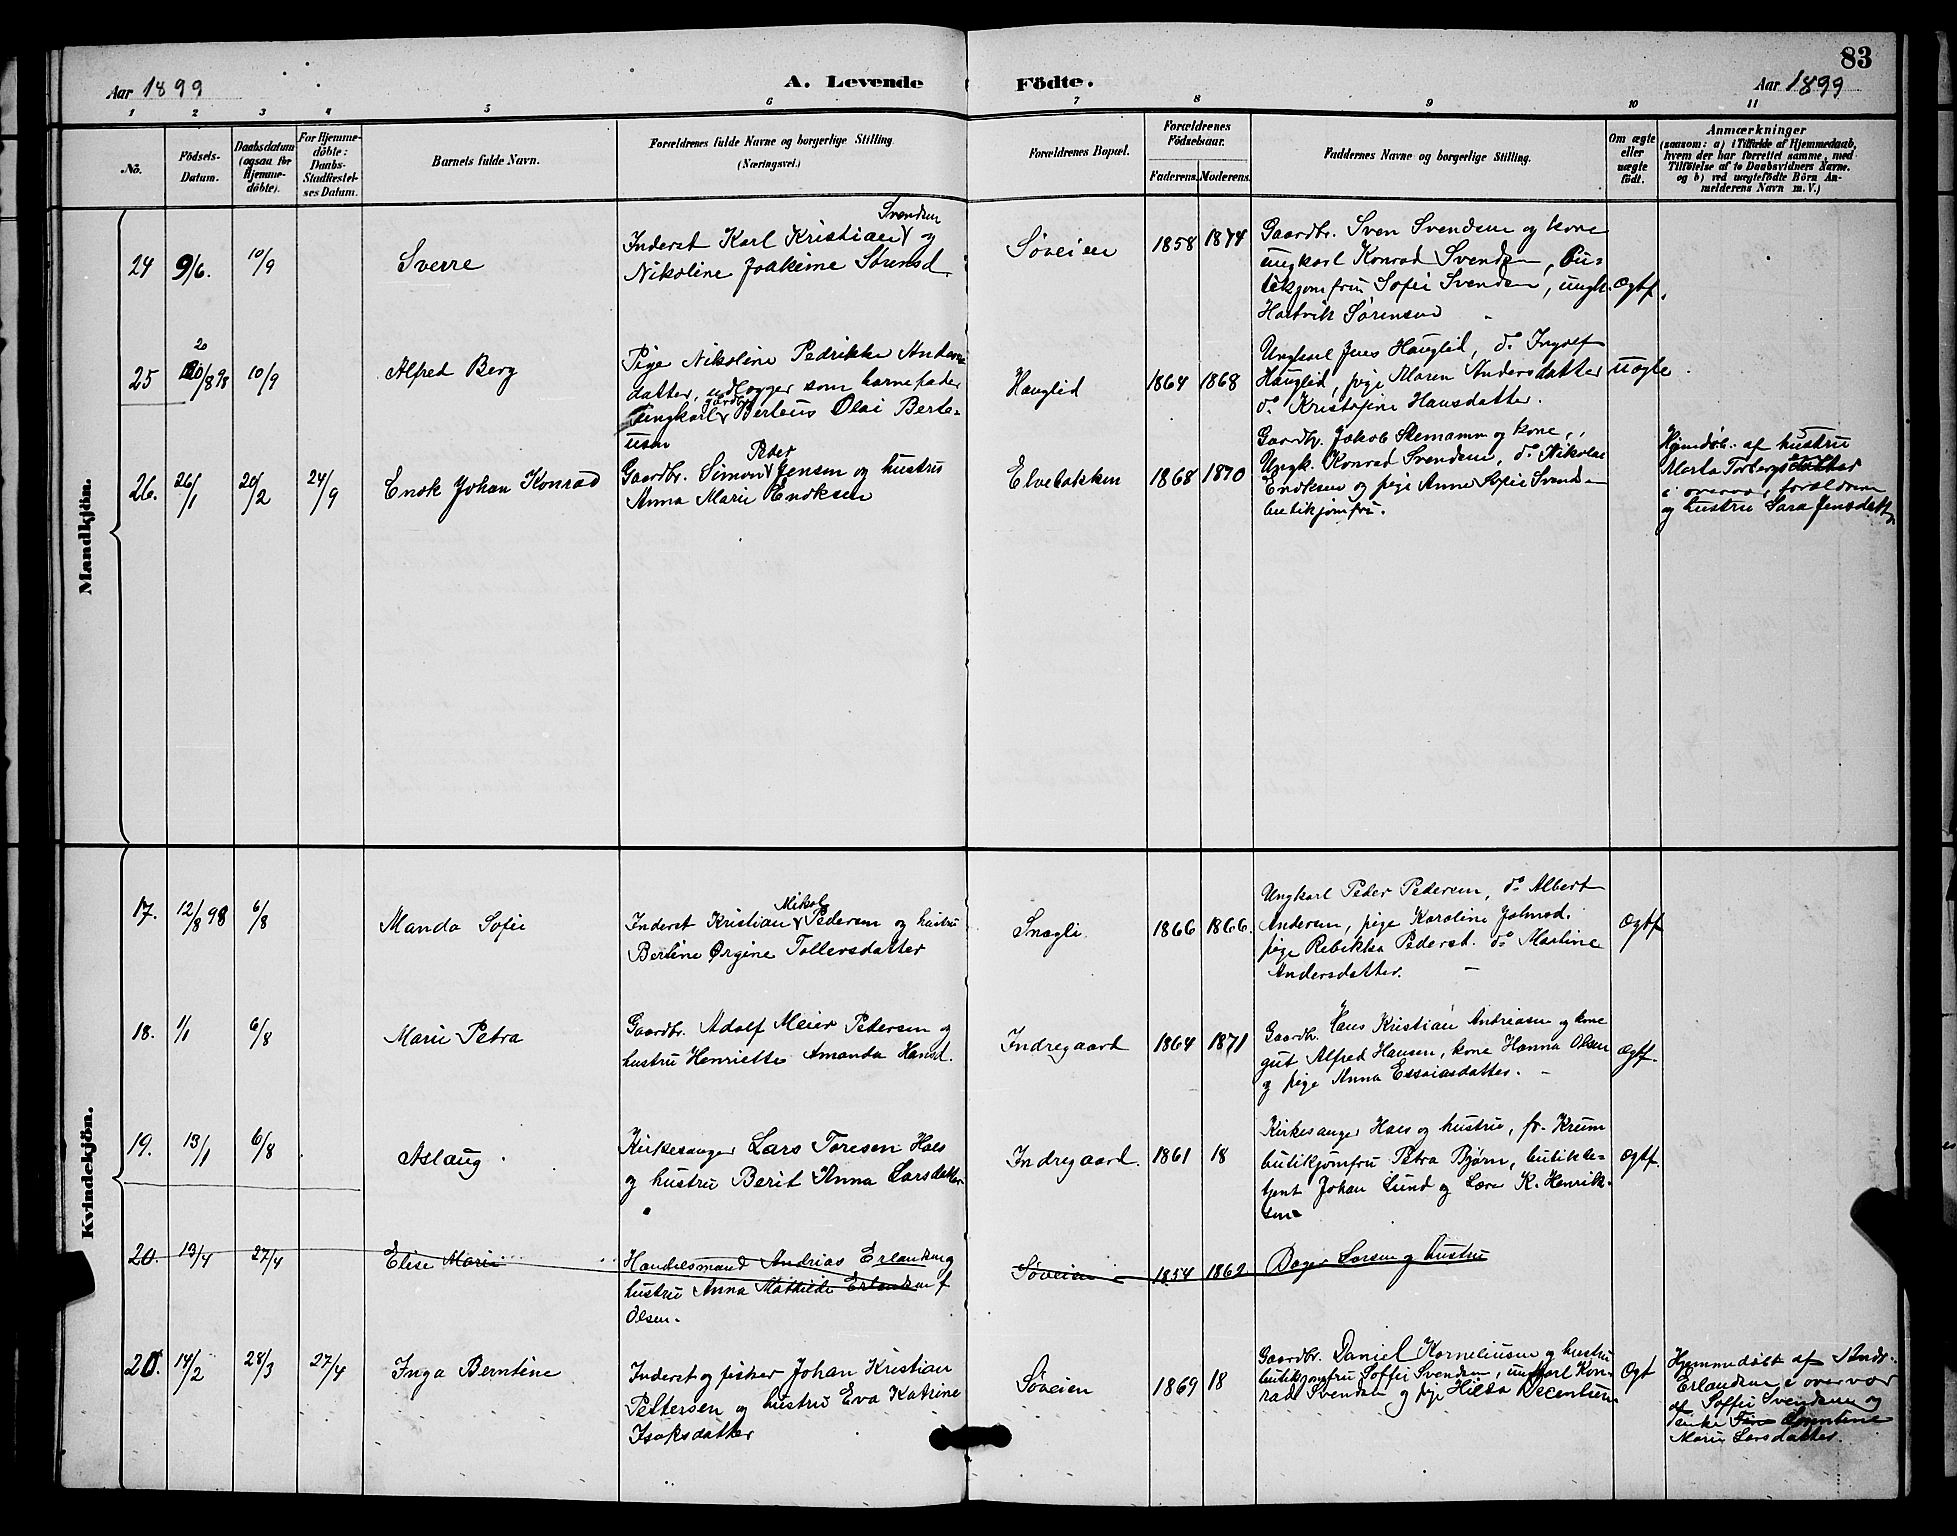 83
Aar 1899
A. Levende Födte.
Aar 1899
1 2 3 4 5 6 7 8 9 10 11
No.
Födsels-
Datum.
Daabsdatum
(ogsaa for
Hjemme-
döbte).
For Hjemme-
döbte:
Daabs-
Stadfestel-
ses Datum.
Barnets fulde Navn.
Forældrenes fulde Navne og borgerlige Stilling
(Næringsvei.)
Forældrenes Bopæl.
Forældrenes
Födselsaar.
Faderens. Moderens.
Faddernes Navne og borgerlige Stilling.
Om ægte
eller
uægte
födt.
Anmærkninger
(saasom: a) i Tilfælde af Hjemmedaab,
hvem der har forrettet samme, med
Tilföielse af to Daabsvidners Navne.
og b) ved uægtefödte Börn An-
melderens Navn m. V.)
Mandkjön.
24 9/6. 10/9
Sverre
Svendsen
Inderst Karl Kristian og
Nikoline Joakime Sörensd.
Söveien
1858 1874
Gaardbr. Sven Svendsen og kone
ungkarl Konrad Svendsen, bu-
tikjomfru Sofie Svendsen, ungk.
Hartvik Sörensen
Ægtf.
25 20/8 98 10/9
Alfred Berg
Pige Nikoline Pedrikke Anders
datter, udlægger som barnefader
ungkarl gårdbr. Berteus Olai Berte-
usen
Hauglid
1864 1868
Ungkarl Jens Hauglid, do Ingolf
Hauglid, pige Maren Andersdatter
do Kristofine Hansdatter.
uægte
26. 26/1 20/2 24/9
Enok Johan Konrad
Peder
Gaardbr. Simon Jensen og hustru
Anna Marie Enoksen
Elvebakken
1868 1870
Gaardbr. Jakob Stemann og kone,
Ungk. Konrad Svendsen, do Nikolai
Enoksen og pige Anne Sofie Svends-
butikjomfru.
Hjemdöb. af hustru
Merta Torbergsdatter
i overvær forældrene
og hustru Sara Jensdatt.
Kvindekjön.
17. 12/8 98 6/8
Manda Sofie
Mikal
Inderst Kristian Pedersen og hustru
Bertine Örgine Tollersdatter
Snegli
1866 1866.
Ungkarl Peder Pedersen, do Albert
Andersen, pige Karoline Johnsd.
pige Rebikka Pederst. do Martine
Andersdatter.
Ægtf
18. 1/1 6/8
Marie Petra
Gaardbr. Adolf Meier Petersen og
hustru Henriette Amanda Hansd.
Indregaard
1864 1871
Gaardbr. Hans Kristian Andreasen og kone
gut Alfred Hansen, kone Hanna Olsen
og pige Anna Essaiasdatter.
Ægtf.
19. 13/1 6/8
Aslaug
Kirkesanger Lars Toresen Haes
og hustru Berit Anna Larsdatter
Indregaard.
1861 18
Kirkesanger Haes og hustru, fr. Krum
butikjomfru Petra Bjørn, butikbe-
tjent Johan Lund og Lære K. Henrik-
sen
Ægtf.
20. 13/4 27/4
Elise Marie
Handelsmand Andrias Erlandsen og
hustru Anna Mathilde Erlandsen f
Olsen.
Söveien
1854 1862
Larsen og hustru
20. 14/2 28/3 27/4
Inga Berntine
Inderst og fisker Johan Kristian
Pettersen og hustru Eva Katrine
Isaksdatter
Söveien
1869 18
Gaardbr. Daniel Korneliusen og hustru
butikjomfru Soffie Svendsen, ungkarl Kon-
rad Svendsen og pige Hilda
Ægt
Hjemmedöbt af Andr.
Erlandsen i overvær
af Soffie Svendsen og
enke
Marie Larsdatter.